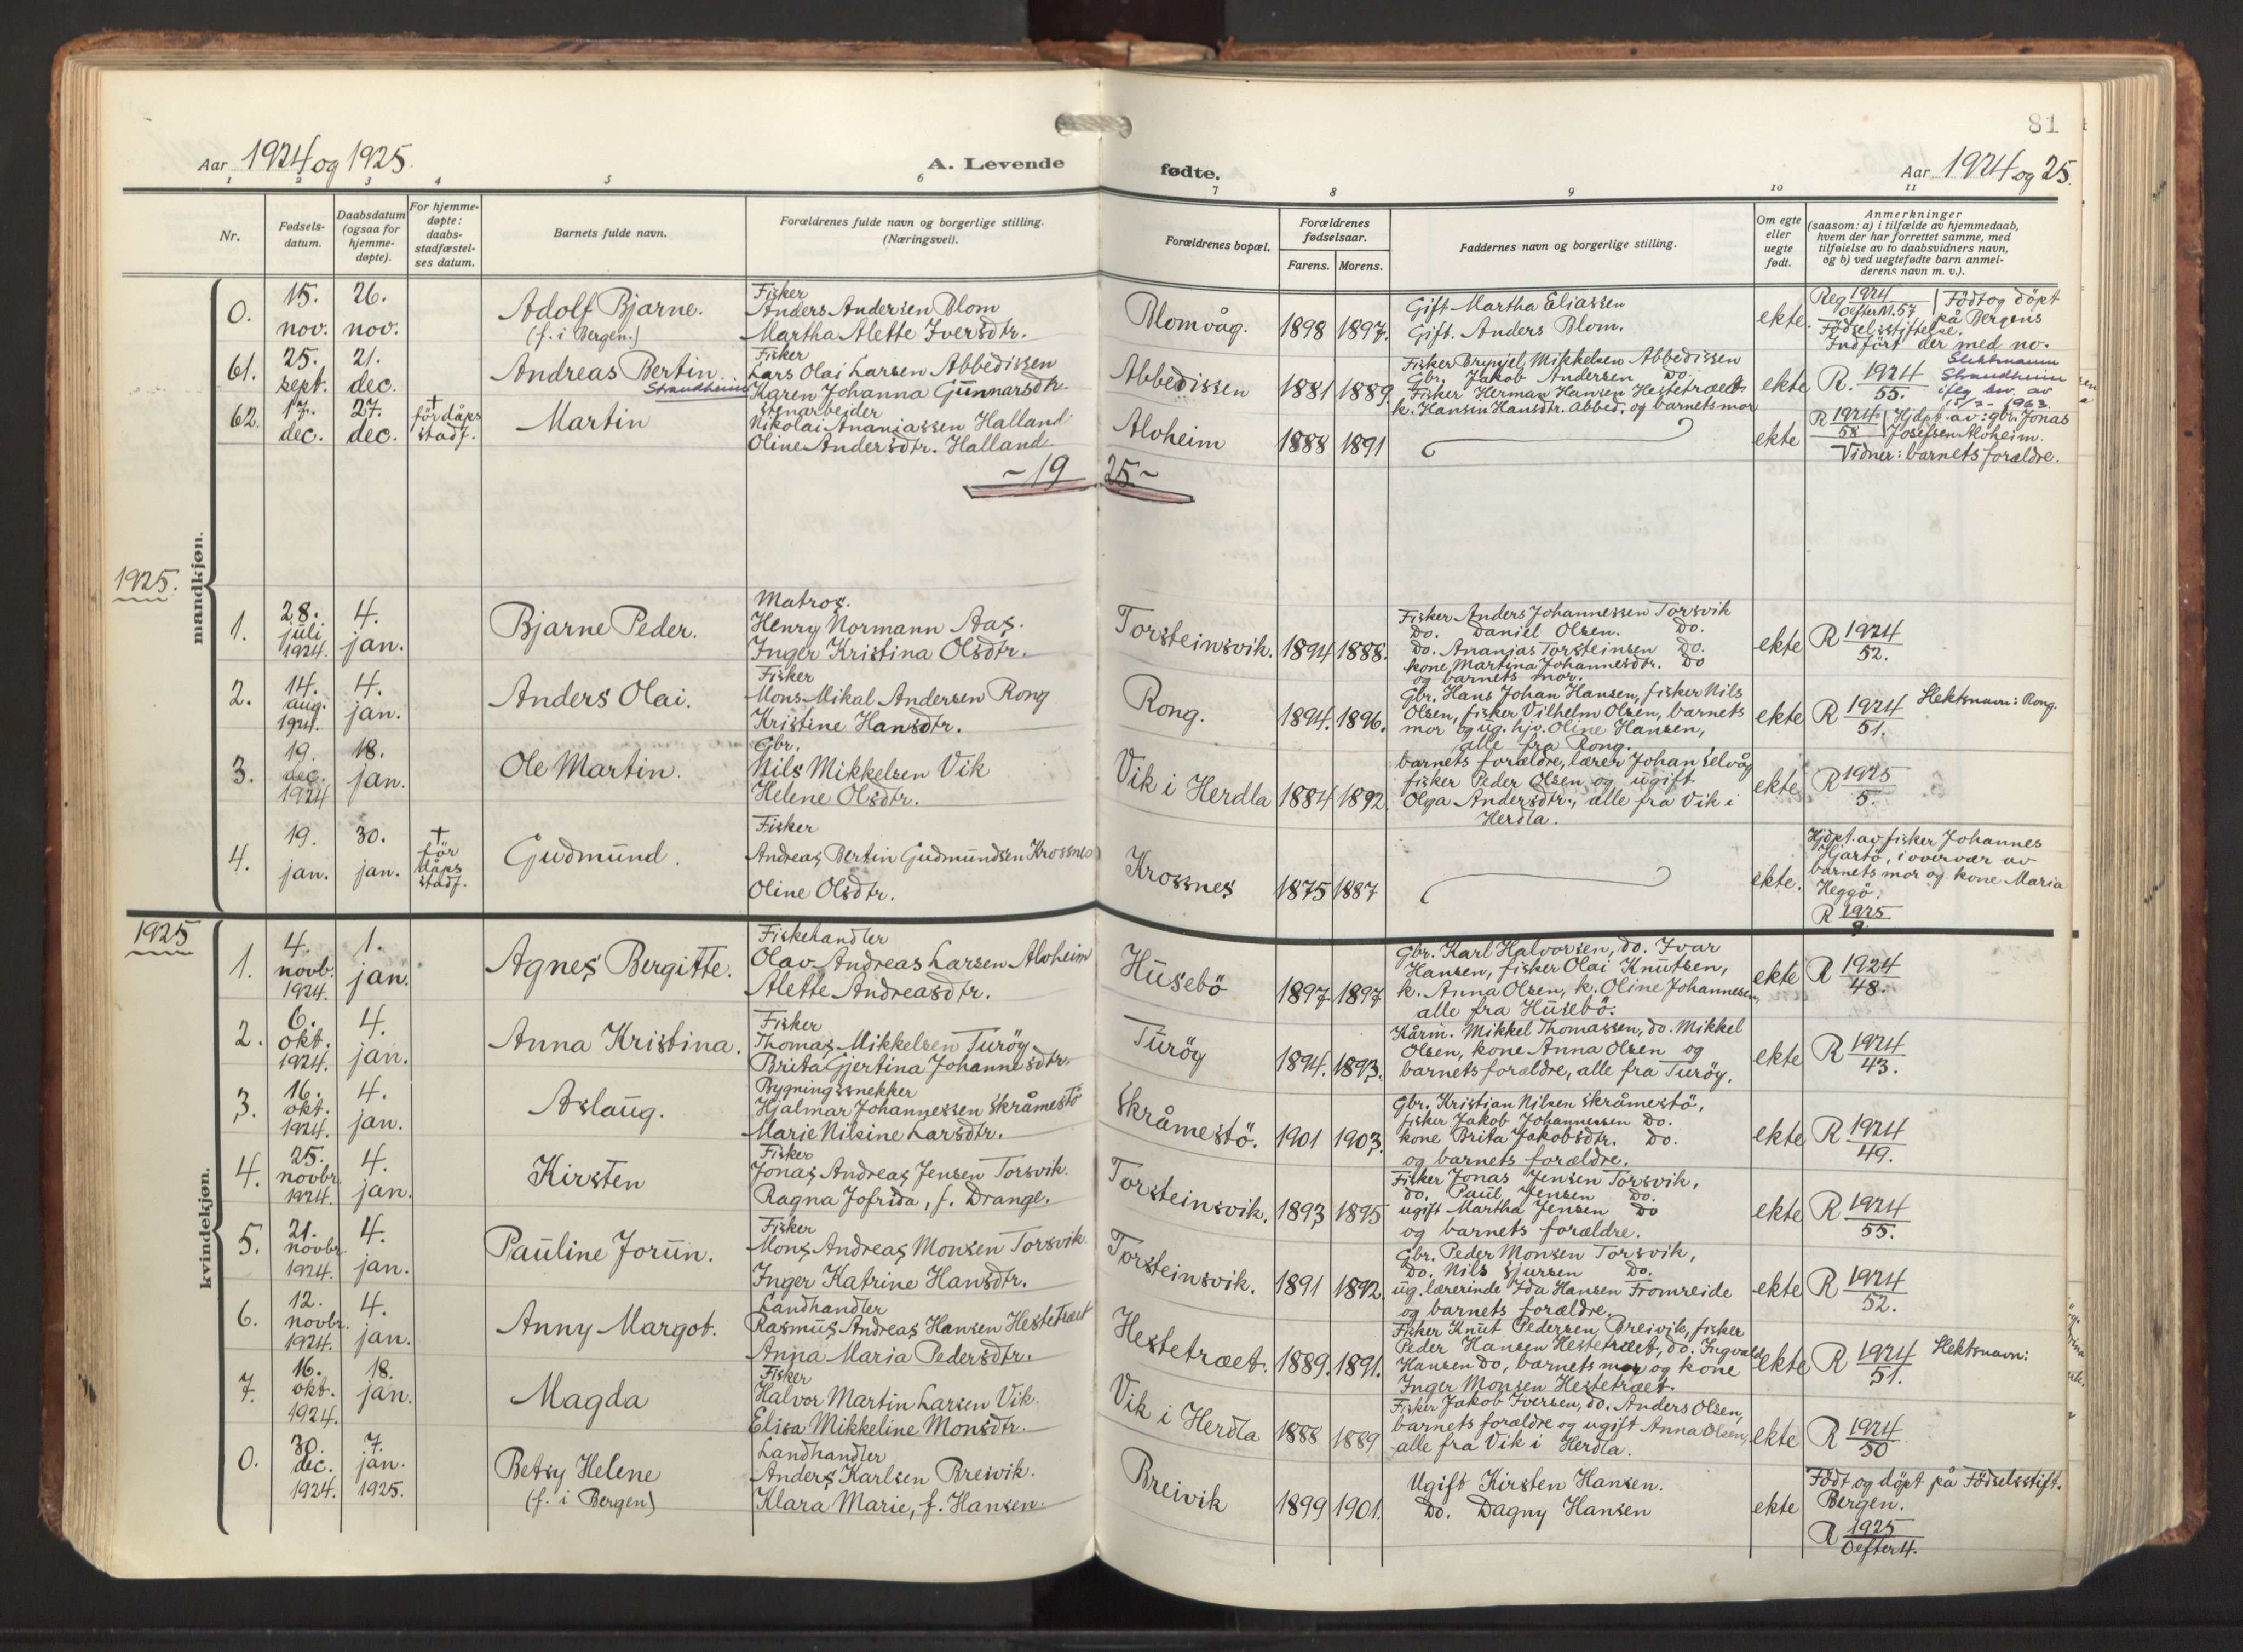 81
Aar 1924 og 1925.
A. Levende
fødte.
Aar 1924 og 25.
1 2 3 4 5 6 7 8 9 10 11
Nr.
Fødsels-
datum.
Daabsdatum
(ogsaa for
hjemme-
døpte).
For hjemme-
døpte:
daabs-
stadfæstel-
ses datum.
Barnets fulde navn.
Forældrenes fulde navn og borgerlige stilling.
(Næringsvei).
Forældrenes bopæl.
Forældrenes
fødselsaar.
Farens. Morens.
Faddernes navn og borgerlige stilling.
Om egte
eller
uegte
født.
Anmerkninger
(saasom: a) i tilfælde av hjemmedaab,
hvem der har forrettet samme, med
tilføielse av to daabsvidners navn,
og b) ved uegtefødte barn anmel-
derens navn m. v.).
mandkjøn.
0.
15.
nov.
26.
nov.
Adolf Bjarne.
(f. i Bergen.)
Fisker
Anders Andersen Blom
Martha Alette Iversdtr.
Blomvåg.
1898 1897.
Gift Martha Eliassen
Gift. Anders Blom.
ekte.
Reg 1924
Oefter M. 57
Födt og döpt
på Bergens
Födselsstiftelse.
Indført der med no.
61.
25.
sept.
21.
dec.
Andreas Bertin.
Strandheim
Fisker
Lars Olai Larsen Abbedissen
Karen Johanna Gunnarsdtr.
Abbedissen
1881 1889.
Fisker Brynjel Mikkelsen Abbedissen
Gbr. Jakob Andersen Do.
Fisker Herman Hansen Hestetræet
k. Hansin Hansdtr. Abbed. og barnets mor
ekte
R. 1924
55.
Slektsnavn
Strandheim
iflg. bev. av
1963.
62.
17.
dec.
27.
dec.
†
för dåps
stadf.
Martin
Stenarbeider
Nikolai Ananiassen Halland
Oline Andersdtr. Halland.
Aloheim
1888 1891
ekte
R 1924
58
Hjdpt. av: gbr. Jonas
Josefsen Aloheim.
Vidner: barnets forældre.
~ 19 25 ~
1925.
1.
28.
juli
1924.
4.
jan.
Bjarne Peder.
Matros.
Henry Normann Aas.
Inger Kristina Olsdtr.
Torsteinsvik.
1894 1888.
Fisker Anders Johannessen Torsvik
Do. Daniel Olsen. Do.
Do. Ananias Torsteinsen Do.
kone Martina Johannesdtr. Do
og barnets mor.
ekte
R 1924
52.
2.
14.
aug.
1924.
4.
jan.
Anders Olai.
Fisker
Mons Mikal Andersen Rong
Kristine Hansdtr.
Rong.
1894. 1896.
Gbr. Hans Johan Hansen, fisker Nils
Olsen, fisker Vilhelm Olsen, barnets
mor og ug. hjv. Oline Hansen,
alle fra Rong.
ekte
R 1924
51.
Slektsnavn: Rong.
3.
19.
dec.
1924
18.
jan.
Ole Martin.
Gbr.
Nils Mikkelsen Vik
Helene Olsdtr.
Vik i Herdla
1884 1892.
barnets forældre, lærer Johan Selvåg
fisker Peder Olsen og ugift
Olga Andersdtr., alle fra Vik i
Herdla.
ekte
R 1925
5.
4.
19.
jan.
30.
jan.
†
för
dåps
stadf.
Gudmund.
Fisker
Andreas Bertin Gudmundsen Krossnes
Oline Olsdtr.
Krossnes
1875 1887
ekte.
Hjdpt. av fisker Johannes
Hjartö, i overvær av
barnets mor og kone Maria
Heggö.
R 1925
9.
1925
kvindekjøn.
1.
4.
novb.
1924.
1.
jan.
Agnes Bergitte.
Fiskehandler
Olav Andreas Larsen Aloheim
Alette Andreasdtr.
Husebö
1897 1897
Gbr. Karl Halvorsen, do. Ivar
Hansen, fisker Olai Knutsen,
k. Anna Olsen, k. Oline Johannesen,
alle fra Husebö.
ekte
R 1924
48.
2.
6.
okt.
1924.
4.
jan.
Anna Kristina.
Fisker
Thomas Mikkelsen Turöy
Brita Gjertina Johannesdtr.
Turöy
1894. 1893.
Kårm. Mikkel Thomassen, do. Mikkel
Olsen, kone Anna Olsen og
barnets forældre, alle fra Turöy.
ekte
R 1924
43.
3.
16.
okt.
1924.
4.
jan.
Aslaug.
Bygningssnekker
Hjalmar Johannessen Skråmestö
Marie Nilsine Larsdtr.
Skråmestö.
1901 1903.
Gbr. Kristian Nilsen Skråmestö,
fisker Jakob Johannessen Do.
kone Brita Jakobsdtr. Do.
og barnets forældre.
ekte
R 1924
49.
4.
25.
novbr
1924.
4.
jan.
Kirsten
Fisker
Jonas Andreas Jensen Torsvik.
Ragna Jofrida, f. Drange.
Torsteinsvik.
1893 1895
Fisker Jonas Jensen Torsvik,
do. Paul Jensen Do.
ugift Martha Jensen Do
og barnets forældre.
ekte
R 1924
55.
5.
21.
novbr.
1924.
4.
jan.
Pauline Jorun.
Fisker
Mons Andreas Monsen Torsvik.
Inger Katrine Hansdtr.
Torsteinsvik.
1891 1892.
Gbr. Peder Monsen Torsvik,
Do. Nils Sjursen Do.
ug. lærerinde Ida Hansen Fromreide
og barnets forældre.
ekte
R 1924
52.
6.
12.
novbr.
1924.
4.
jan.
Anny Margot.
Landhandler
Rasmus Andreas Hansen Hestetræet
Anna Maria Pedersdtr.
Hestetræet.
1889. 1891.
Fisker Knut Pedersen Breivik, fisker
Peder Hansen Hestetræet, do. Ingvald
Hansen do, barnets mor og kone
Inger Monsen Hestetræet.
ekte
R 1924
51.
Slektsnavn:
7.
16.
okt.
1924.
18.
jan.
Magda
Fisker
Halvor Martin Larsen Vik.
Elisa Mikkeline Monsdtr.
Vik i Herdla
1888 1889
Fisker Jakob Iversen, do. Anders Olsen,
barnets forældre og ugift Anna Olsen,
alle fra Vik i Herdla.
ekte
R 1924
50
0.
30.
dec.
1924.
7.
jan.
1925.
Betsy Helene
(f. i Bergen)
Landhandler
Anders Karlsen Breivik.
Klara Marie, f. Hansen.
Breivik
1899 1901.
Ugift Kirsten Hansen.
Do. Dagny Hansen
ekte
Födt og döpt på Födselsstift.
Bergen.
R 1925
Oefter 4.